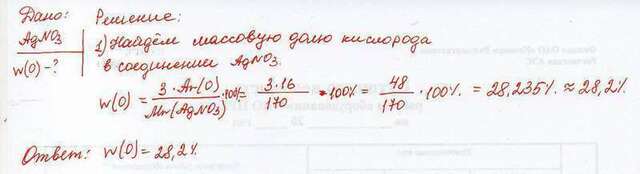 Дано: Решение:
AgNO3
1) Найдём массовую долю кислорода
в соединении AgNO3.
W(O)-?
W(O) = 3·Ar(O)/Mr(AgNO3) ·100% = 3·16/170 ·100% = 48/170 ·100% = 28,235% ≈ 28,2%
Ответ: W(O) = 28,2%